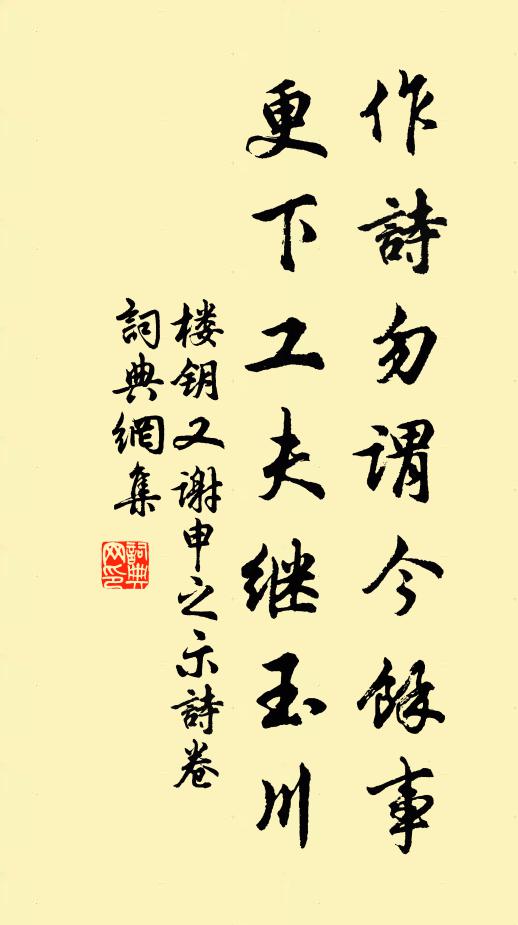 作詩勿謂今餘事
更下工夫继玉川
楼钥又谢申之示詩卷
詞典網集
詞典网印